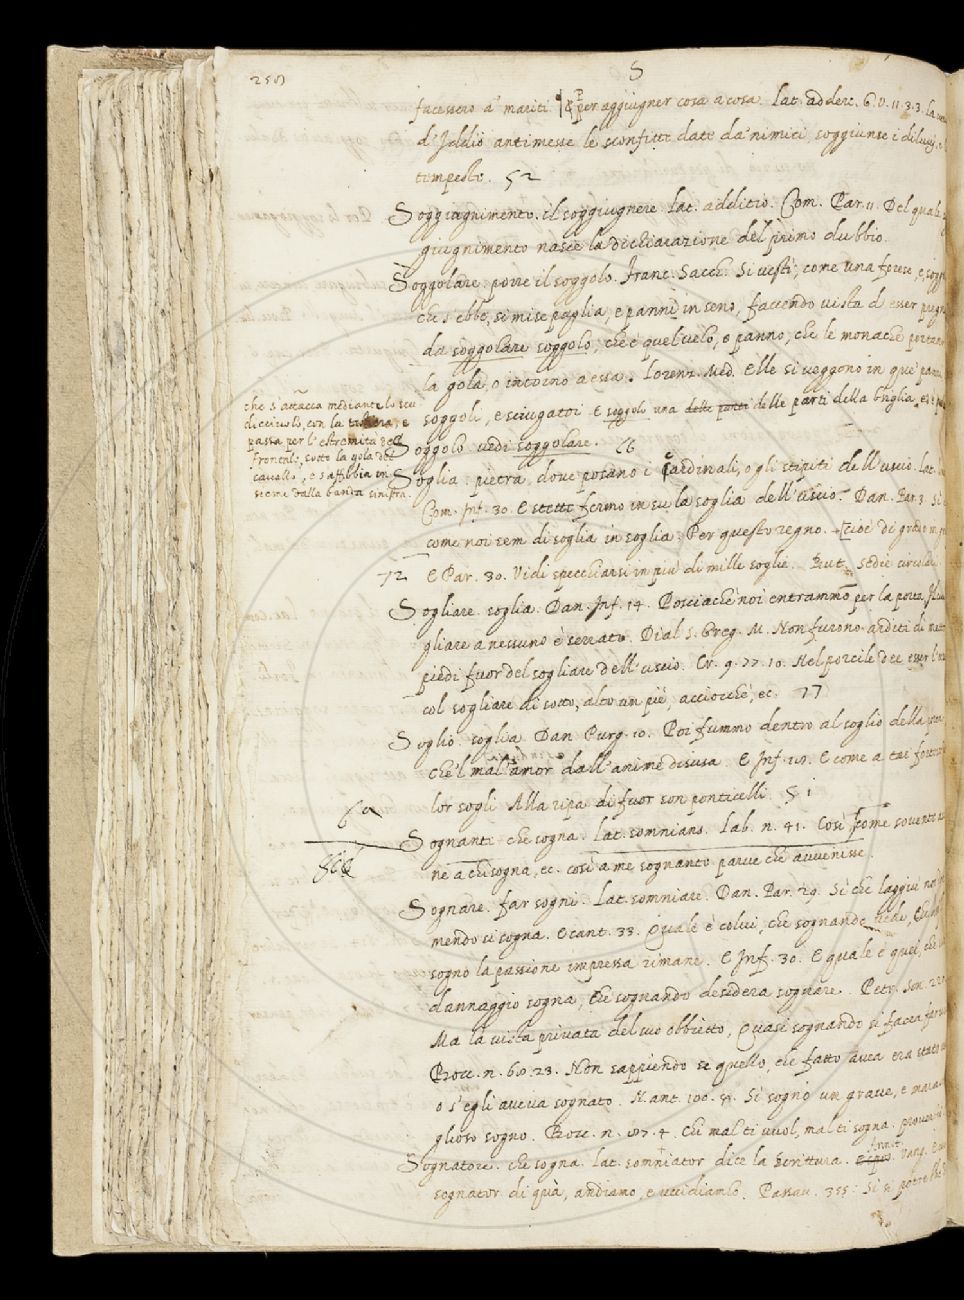 S
facessero a' mariti. & per aggiugner cosa a cosa. Lat. addere. G.V. 11. 3. 3. La
d'Iddio antimesse le sconfitte date da' nimici, soggiunse i diluvj, e
tempeste. 52
Soggiugnimento. il soggiugnere. Lat. additio. Com. Par. 11. Del qual
giugnimento nasce la dichiarazione del primo dubbio.
Soggolare. porre il soggolo. Franc. Sacch. Si vestì, come una fosse e, sogg
che s'ebbe, si mise paglia, e panni in seno, faccendo vista d'esser pregn
da soggolare soggolo, che è quel velo, o panno, che le monache portano
la gola, o intorno a essa. Lorenz. Med. Elle si veggono in que'
soggoli, e sciugatoi. E soggolo una delle parti della briglia, ed è
che s'attacca mediante lo scu
diccivolo, con la testiera, e
passa per l'estremità del
frontale, sotto la gola del
cavallo, e s'affibbia in
sieme dalla banda sinistra.
Soggolo vedi soggolare. 66
Soglia. pietra, dove posano i cardinali, o gli stipiti dell'uscio. Lat.
Com. Inf. 30. E stette fermo in su la soglia dell'uscio. Dan. Par. 3. Sì
come noi sem di soglia in soglia: Per questo regno. cioè di grado in
72 E Par. 30. Vidi specchiarsi in più di mille soglie. But. sedie circolari.
Sogliare. soglia. Dan. Inf. 14. Posciachè noi entrammo per la porta, Il cui
gliare a nessuno è serrato. Dial. S. Greg. M. Non furono arditi di
piedi fuor del sogliare dell'uscio. Cr. 9. 77. 10. Nel porcile dee esser l'
col sogliare di sotto, alto un piè, acciocchè, ec. 77
Soglio. soglia. Dan. Purg. 10. Poi fummo dentro al soglio della
che 'l mal amor dell'anime disusa. E Inf. 18. E come a tai fortezze
lor sogli Alla ripa di fuor son ponticelli. 51
Sognante. che sogna. Lat. somnians. Lab. n. 41. Così come sovente
ne a chi sogna, ec. così a me sognante parve che avvenisse.
866
Sognare. far sogni. Lat. somniare. Dan. Par. 29. Sì che laggiù non
mendo si sogna. E cant. 33. Quale è colui, che sognando vede, Che
sogno la passione impressa rimane. E Inf. 30. E quale è quei, che
dannaggio sogna, Che sognando desidera sognare. Petr. Son.
Ma la vista privata del suo obbietto, Quasi sognando si facea far
Bocc. n. 60. 23. Non sappiendo se quello, che fatto avea era stato
o s'egli aveva sognato. N. ant. 100. Si sognò un grave, e mara
glioso sogno. Bocc. n. 87. 4. Chi mal ti vuol, mal ti sogna. proverb.
Sognatore. che sogna. Lat. somniator dice la Scrittura. Annot. Vang. E
sognator di quà, andiamo, e uccidiamlo. Passav. 355. Si si potrebbe